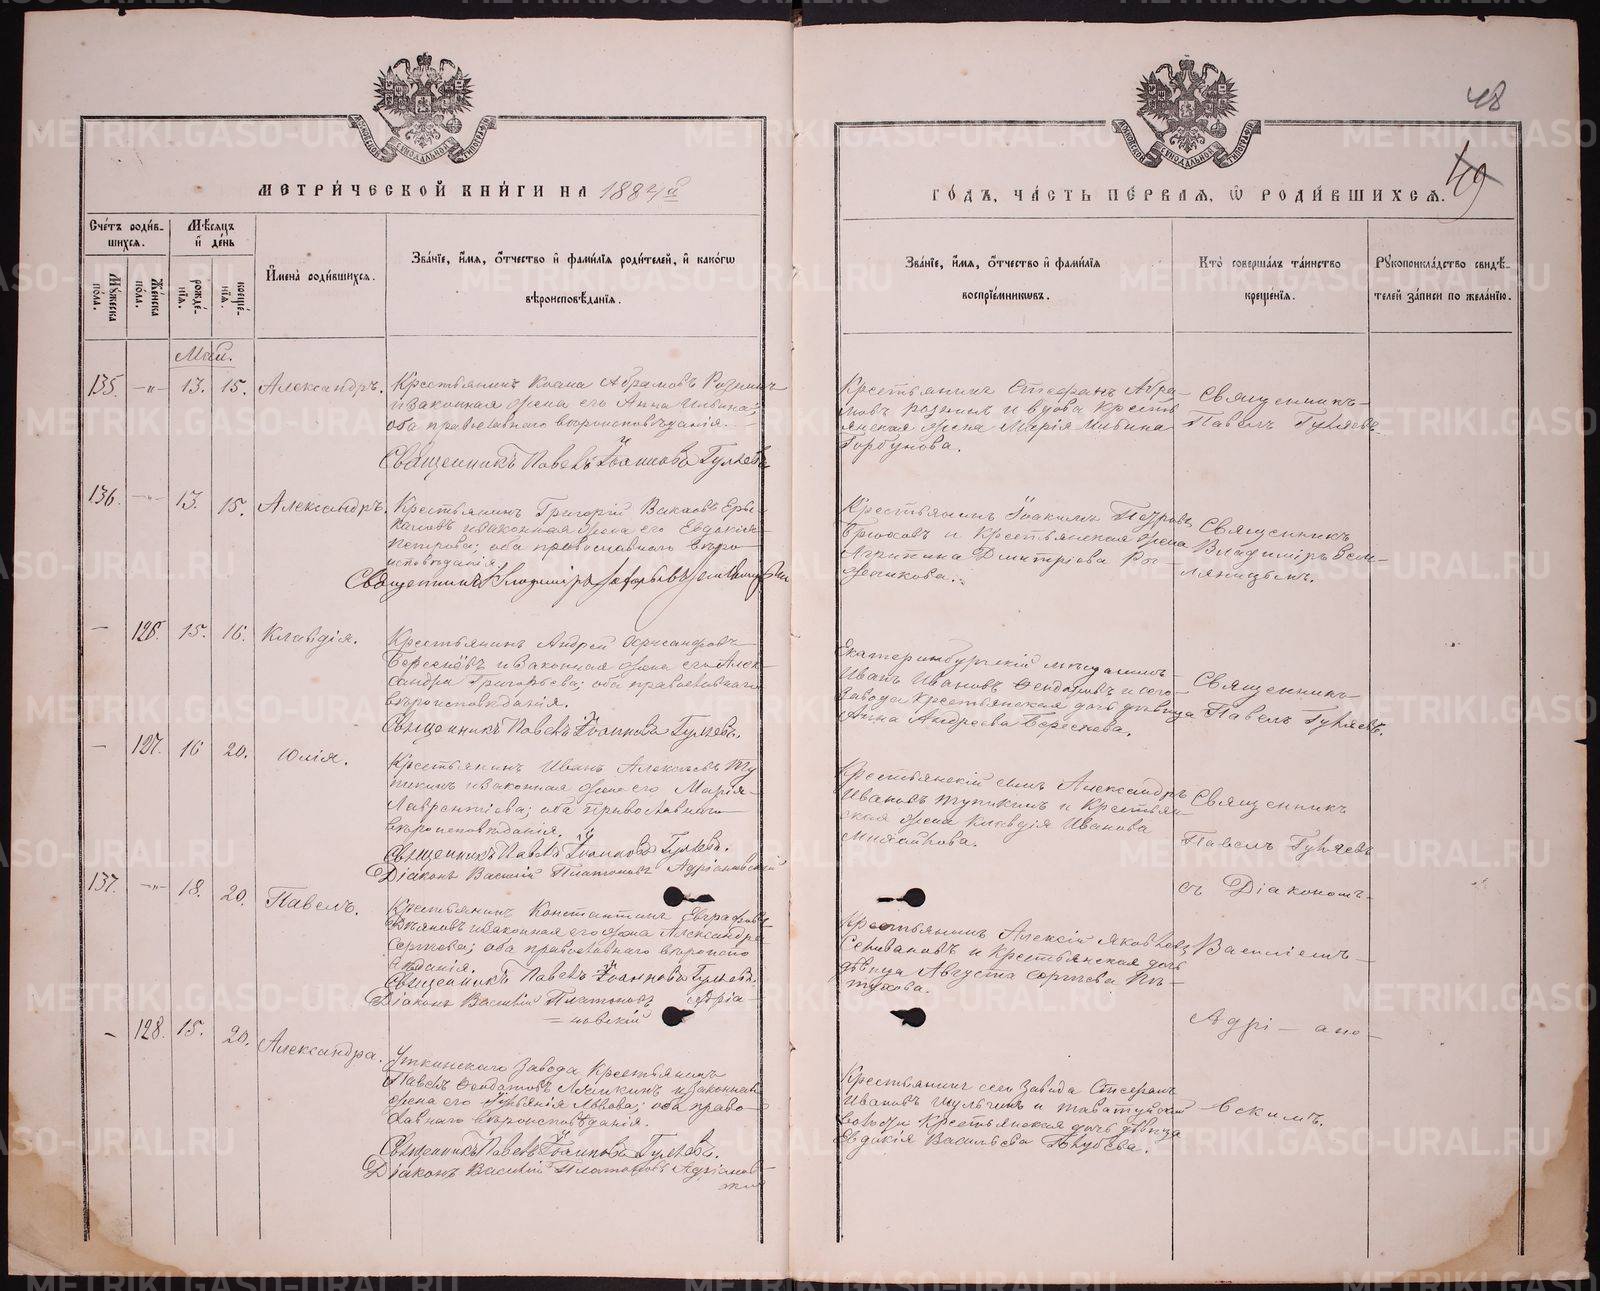 48
49
МЕТРИ́ЧЕСКОЙ КНИ́ГИ НА 1884й
ГО́ДЪ, ЧА́СТЬ ПЕ́РВАЯ, Ѿ РОДИ́ВШИХСЯ.
Сче́тъ роди́вшихся.
Му́жеска по́ла.
Же́нска по́ла.
Мѣ́сяцъ и де́нь
рожде́нїя.
креще́нїя.
И҆мена̀ роди́вшихся.
Зва́нїе, и҆́мя, ѻ҆́тчество и҆ фами́лїя роди́телей, и҆ како́гѡ вѣроисповѣ́данїя.
Зва́нїе, и҆́мя, ѻ҆́тчество и҆ фами́лїя воспрїе́мникѡвъ.
Кто̀ соверша́лъ та́инство креще́нїя.
Рꙋкоприкла́дство свидѣ́телей за́писи по жела́нїю.
Май.
135 -„- 13. 15. Александръ.
Крестьянинъ Козма Абрамовъ
и законная жена его Анна Ильина;
оба православнаго вѣроисповѣданія.
Священникъ Павелъ Іоанновъ Гуляевъ
Крестьянинъ Стефанъ Абра-
мовъ и вдова Кресть
янская жена Марія Ильина
Горбунова.
Священникъ
Павелъ Гуляевъ.
136. -„- 13. 15. Александръ.
Крестьянинъ Григорій
и законная жена его Евдокія
Петрова; оба православнаго вѣро
исповѣданія.
Священникъ Владиміръ
Крестьянинъ Іоакимъ Петровъ
и Крестьянская жена
Агрипина Димитріева
Священникъ
Владиміръ Зем-
ляницынъ.
- 126. 15. 16. Клавдія.
Крестьянинъ Андрей
Береснёвъ и законная жена его Алек-
сандра Григорьева; оба православнаго
вѣроисповѣданія.
Священникъ Павелъ Іоанновъ Гуляевъ.
Екатеринбургскій мѣщанинъ
Иванъ Ивановъ и сего
завода Крестьянская дочь дѣвица
Анна Андреева Береснева.
Священникъ
Павелъ Гуляевъ.
- 127. 16 20. Юлія.
Крестьянинъ Иванъ Алексѣевъ Ту
пикинъ и законная жена его Марія
Лаврентіева; оба православнаго
вѣроисповѣданія.
Священникъ Павелъ Іоанновъ Гуляевъ.
Діаконъ Василій Платоновъ Адріановскій
Крестьянскій сынъ Александръ
Ивановъ Тупикинъ и Крестьян-
ская жена Клавдія Иванова
Священникъ
Павелъ Гуляевъ
съ Діакономъ
137. -„- 18. 20. Павелъ.
Крестьянинъ Константинъ Евграфовъ
и законная его жена Александра
Сергѣева; оба православнаго вѣроиспо
вѣданія.
Священникъ Павелъ Іоанновъ Гуляевъ.
Діаконъ Василій Платоновъ Адріа-
=новскій
Крестьянинъ Алексій Яковлевъ
Селивановъ и Крестьянская дочь
дѣвица Августа Сергѣева Пѣ-
тухова.
Василіемъ
Адрі-ано-
- 128. 15. 20. Александра.
Уткинскаго Завода Крестьянинъ
Павелъ Ѳеодотовъ и законная
жена его Льво́ва; оба право-
славнаго вѣроисповѣданія.
Священникъ Павелъ Іоанновъ Гуляевъ.
Діаконъ Василій Платоновъ Адріанов-
скій
Крестьянинъ сего Завода Стефанъ
Ивановъ Шульгинъ и Таватуйской
волости Крестьянская дочь дѣвица
Евдокія Васильева
вскимъ.